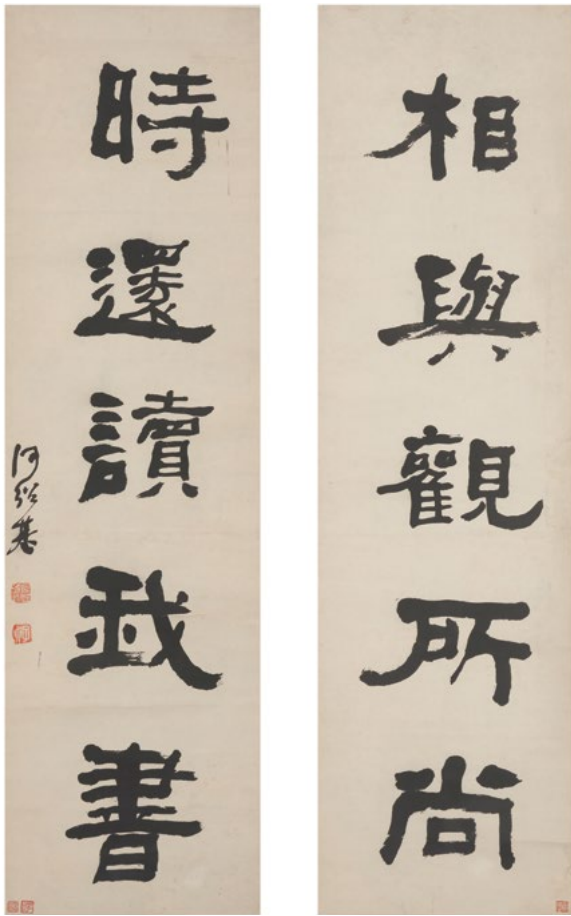 相與觀所尚
時還讀我書
何紹基